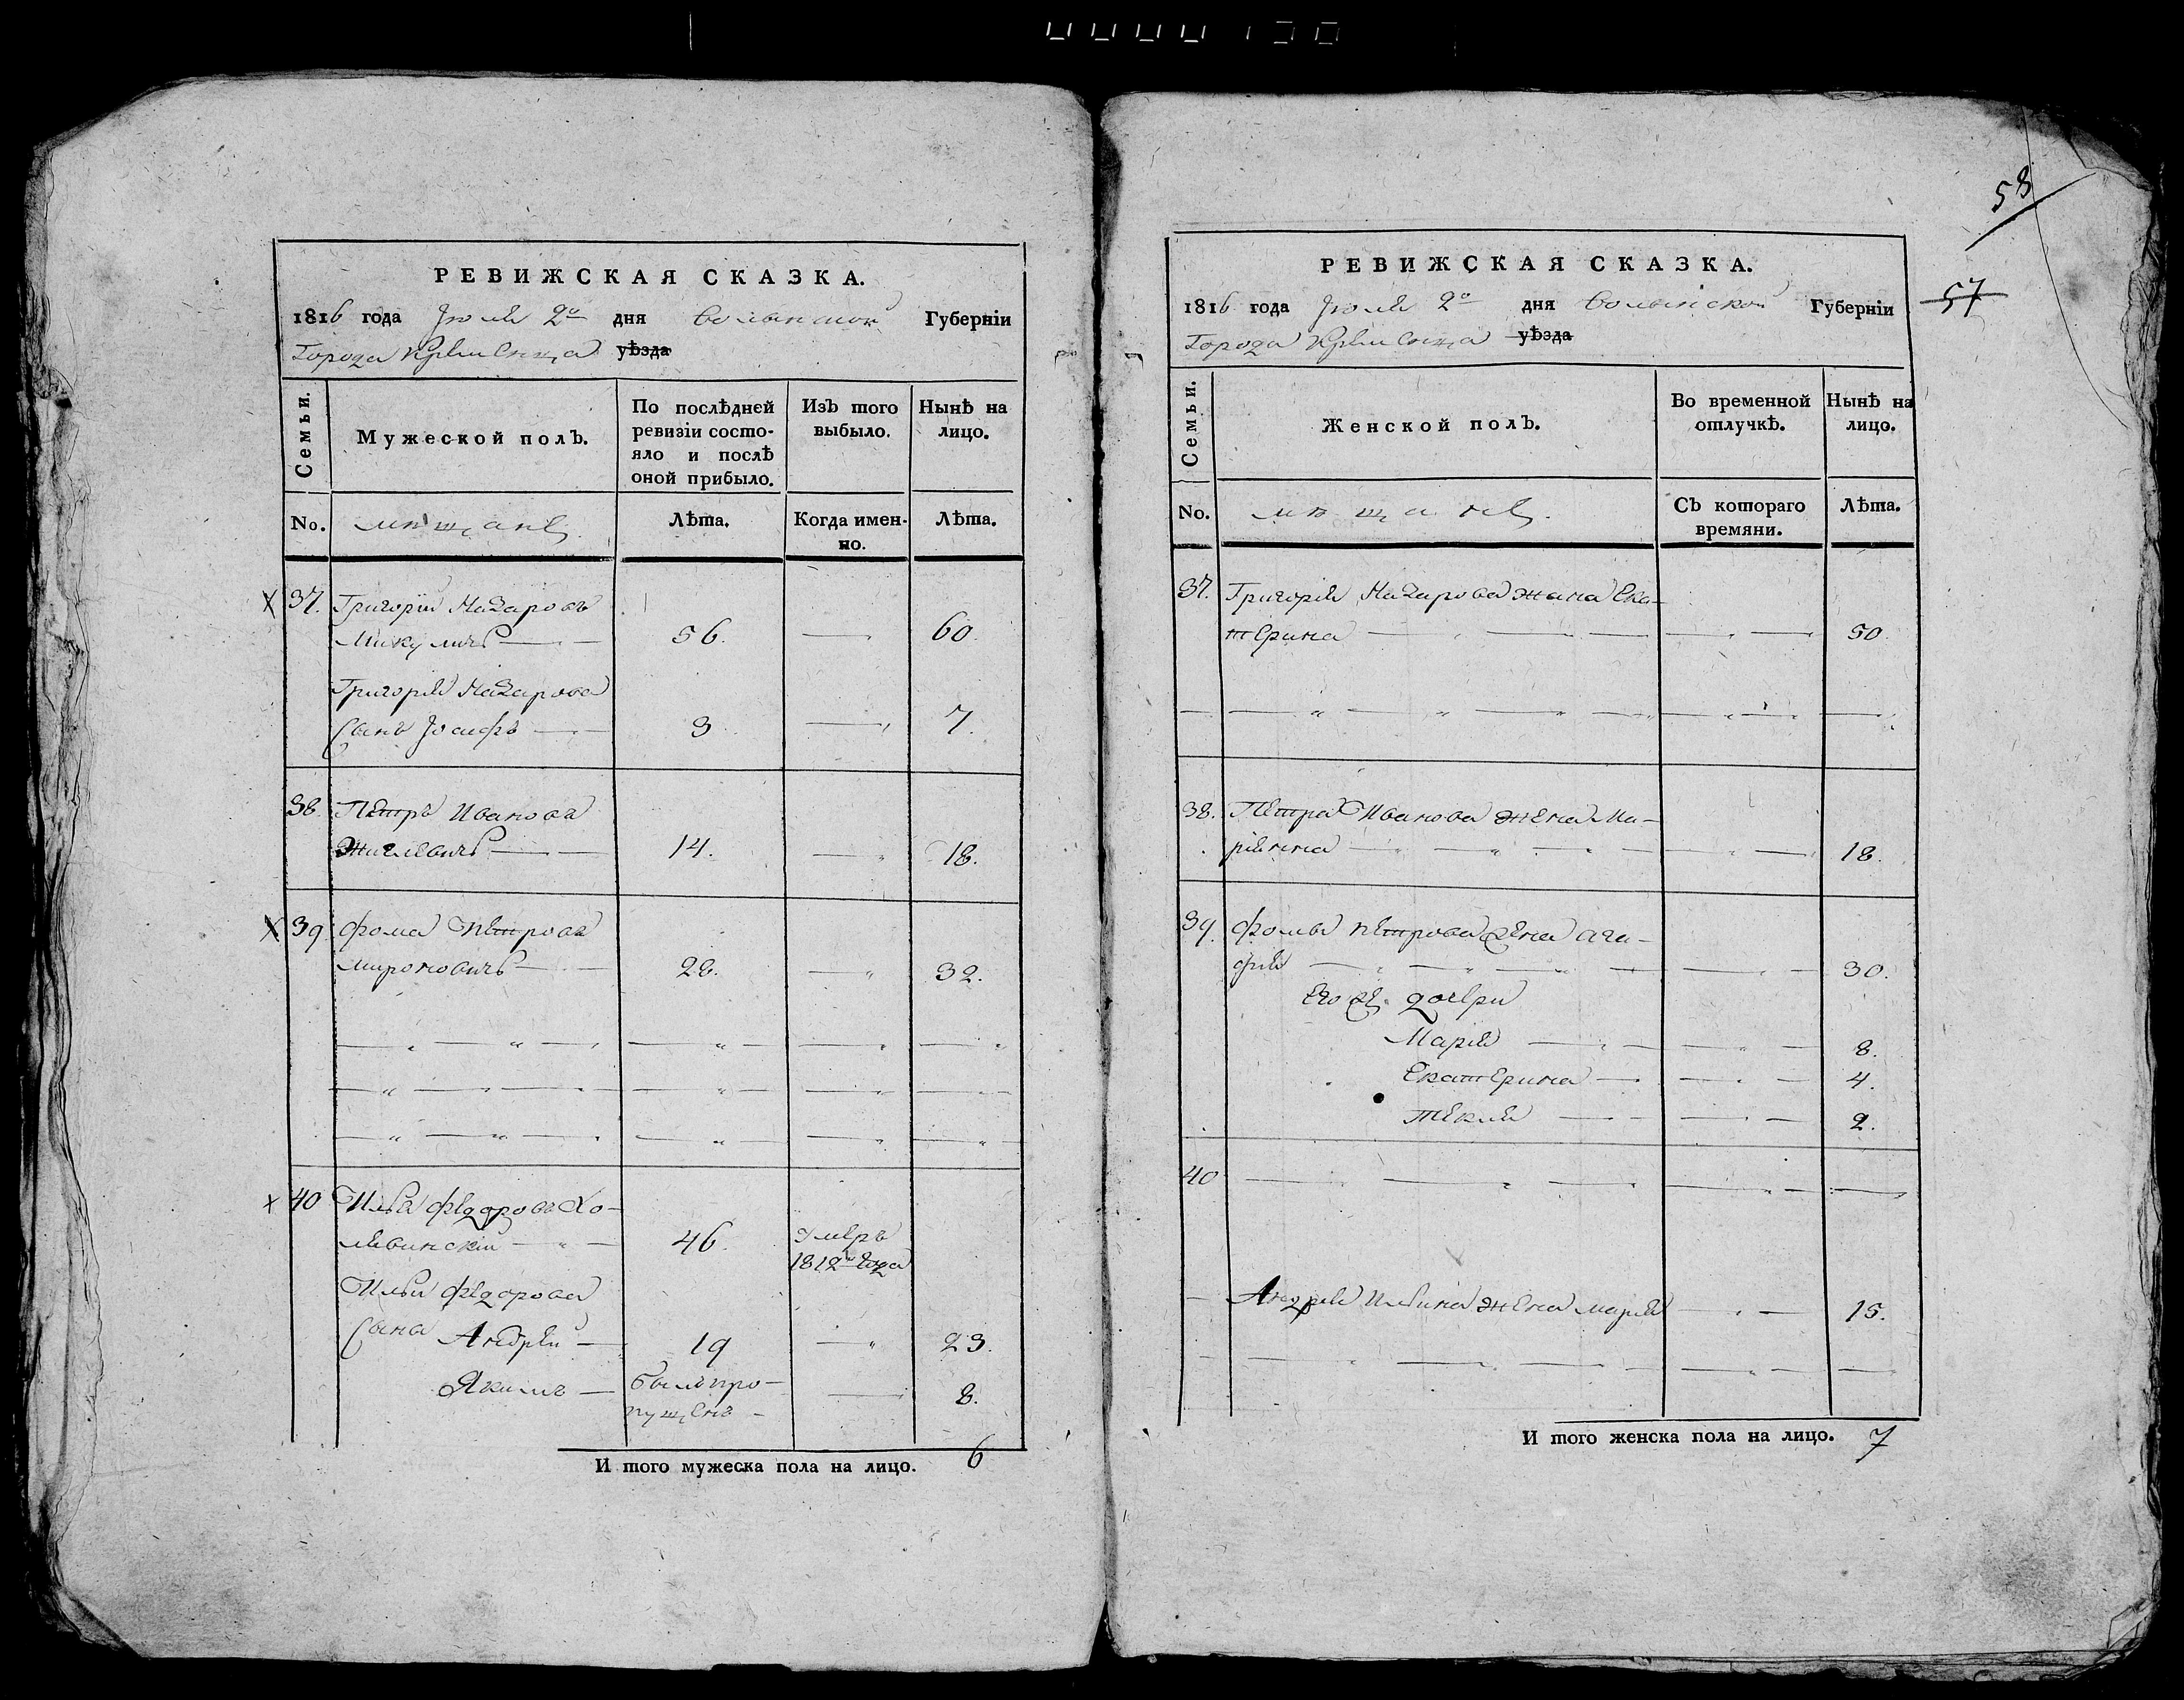 РЕВИЖСКАЯ СКАЗКА.
1816 года Июля 2го дня Волынской Губернiи
Города Кременца уѣзда
Семьи.
Мужеской полъ.
По послѣдней ревизiи состо-
яло и послѣ
оной прибыло.
Изъ того
выбыло.
Нынѣ на
лицо.
No.
мѣщане
Лѣта.
Когда имен-
но.
Лѣта.
37. Григорiй Назаровъ
Микуличъ 56. 60.
Григорiя Назарова
Сынъ Iосифъ 3 7.
38. Петръ Ивановъ
14. 18.
39 Фома Петровъ
Мироновичъ 28. 32.
40 Илья Федоровъ Хо-
левинскiй 46. Умеръ
1812го года
Ильи Федорова
Сына Андрей 19 23.
Якимъ Былъ про-
пущенъ 8.
И того мужеска пола на лицо. 6
58
57
РЕВИЖСКАЯ СКАЗКА.
1816 года Июля 2го дня Волынской Губернiи
Города Кременца уѣзда
Семьи.
Женской полъ.
Во временной
отлучкѣ.
Нынѣ на
лицо.
No.
мѣщане.
Съ котораго
времяни.
Лѣта.
37. Григорiя Назарова жена Ека-
терина 50
38. Петра Иванова жена Ма-
рiянна 18.
39. Фомы Петрова жена Ага-
фiя 30.
Его же дочери
Марiя 8.
Екатерина 4.
Текля 2.
40
Андрея Ильина жена Марiя 15.
И того женска пола на лицо. 7